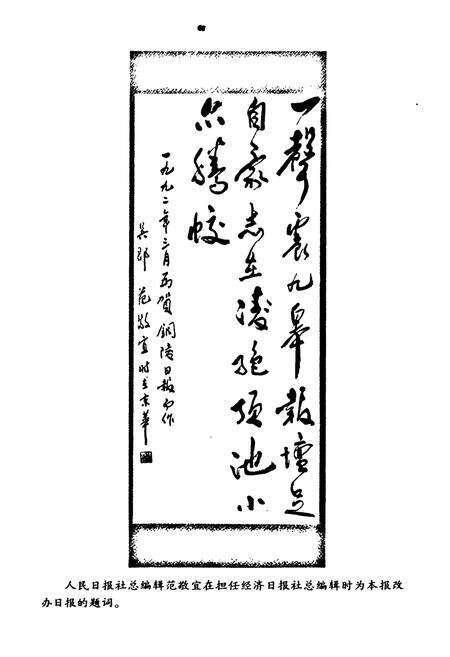 一聲震九皋報壇足
自豪志在凌絕頂池小
亦騰蛟
一九九二年三月为賀銅陵日報而作
吴郡 范敬宜时在京華
人民日报社总编辑范敬宜在担任经济日报社总编辑时为本报改
办日报的题词。